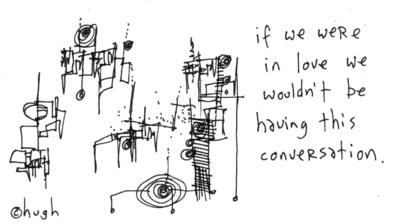 if we were
in love we
wouldn't be
having this
conversation.
©hugh